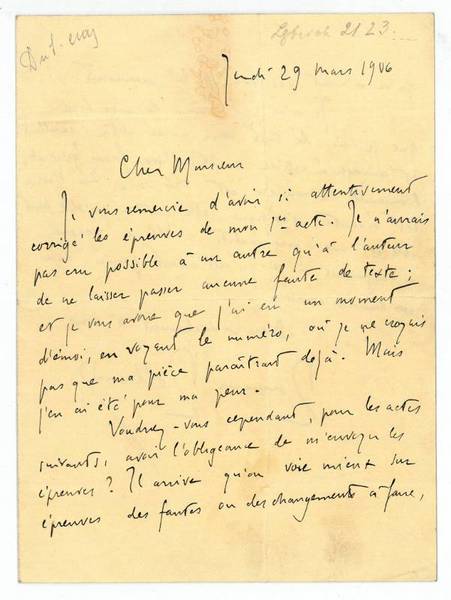 Jeudi 29 mars 1906
Cher Monsieur
Je vous remercie d'avoir si attentivement
corrigé les épreuves de mon 1er acte. Je n'aurais
pas cru possible à un autre qu'à l'auteur
de ne laisser passer aucune faute de texte ;
et je vous avoue que j'ai eu un moment
d'émoi, en voyant le numéro, où je ne croyais
pas que ma pièce paraîtrait déjà. Mais
j'en ai été pour ma peur.
Voudriez-vous cependant, pour les actes
suivants, avoir l'obligeance de m'envoyer les
épreuves ? Il arrive qu'on voie mieux sur
épreuves des fautes ou des changements à faire,